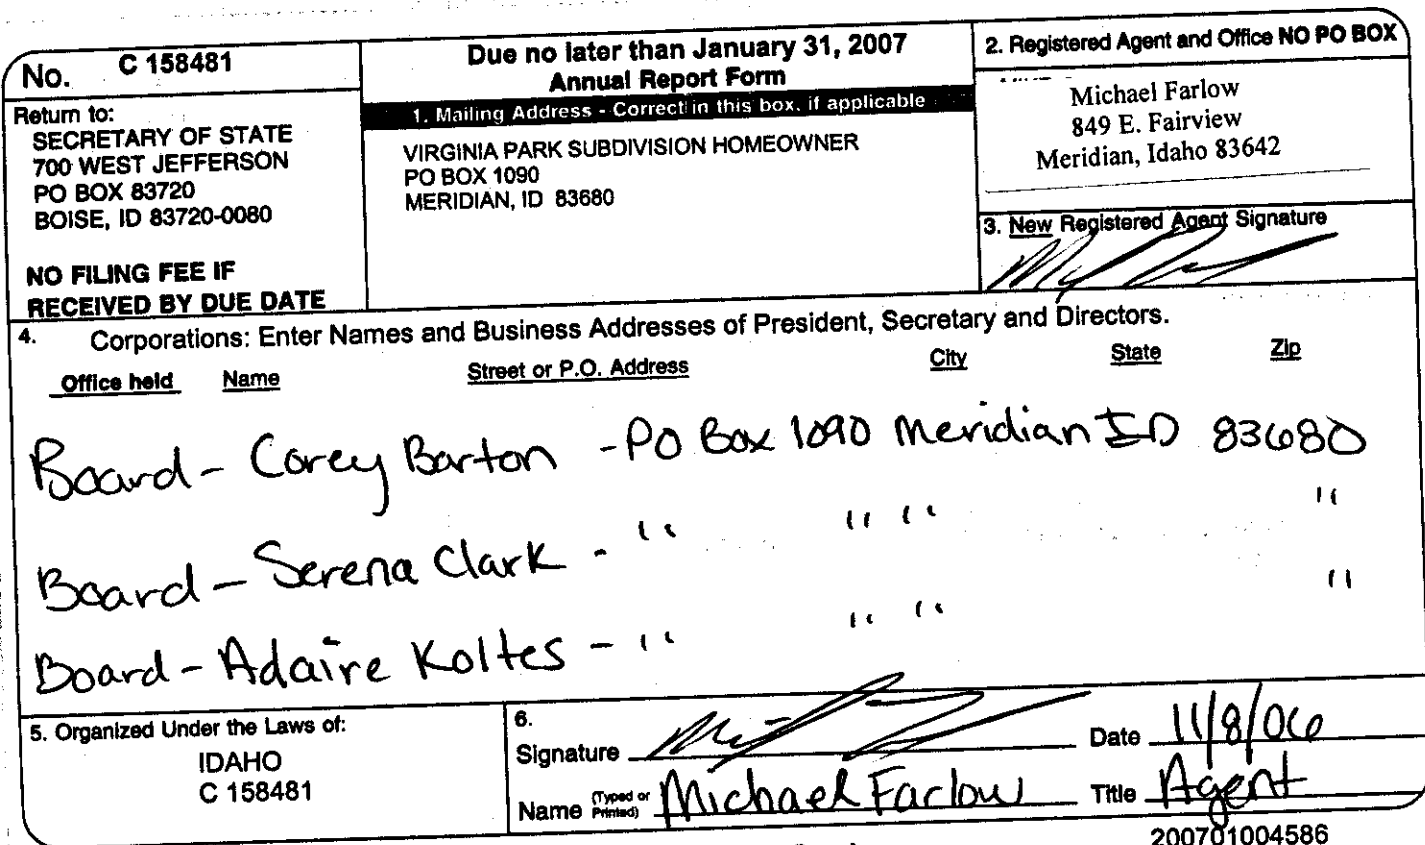 No. C 158481
Return to:
SECRETARY OF STATE
700 WEST JEFFERSON
PO BOX 83720
BOISE, ID 83720-0080
NO FILING FEE IF
RECEIVED BY DUE DATE
Due no later than January 31, 2007
Annual Report Form
1. Mailing Address - Correct in this box, if applicable
VIRGINIA PARK SUBDIVISION HOMEOWNER
PO BOX 1090
MERIDIAN, ID 83680
2. Registered Agent and Office NO PO BOX
Michael Farlow
849 E. Fairview
Meridian, Idaho 83642
3. New Registered Agent Signature
4. Corporations: Enter Names and Business Addresses of President, Secretary and Directors.
Office held Name Street or P.O. Address City State Zip
Board - Corey Barton - PO Box 1090 Meridian ID 83680
Board - Serena Clark - " " " "
Board - Adaire Koltes - " " " "
5. Organized Under the Laws of:
IDAHO
C 158481
6.
Signature Date 11/8/06
Name (Typed or Printed) Michael Farlow Title Agent
200701004586